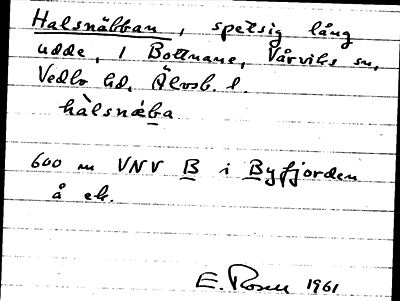 Halsnäbban, spetsig lång
udde, i Bottnane, Vårviks sn,
Vedbo hd, Älvsb. l.
hàlsnába
600 m VNV B i Byfjorden
å ek.
E. Rosen 1961